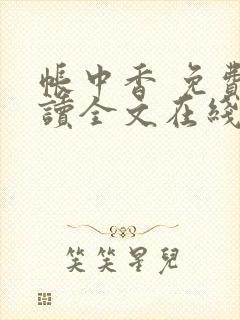 帳中香 免費
讀全文在綫
笑笑星兒